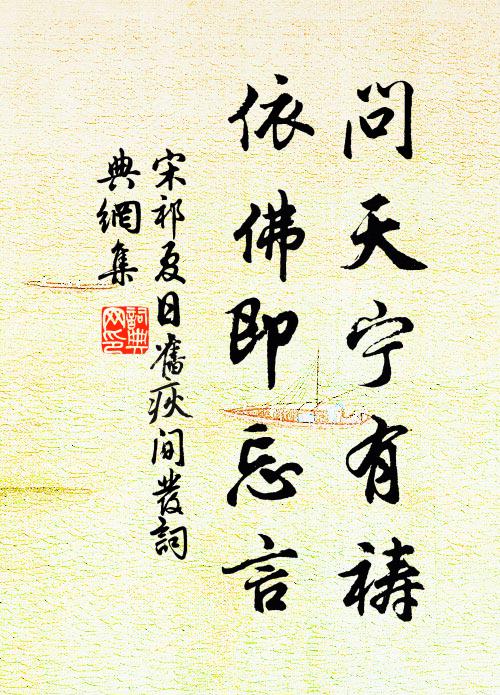 问天宁有祷
依佛即忘言
宋祁夏日旧疢间发词
典網集
詞典
网印